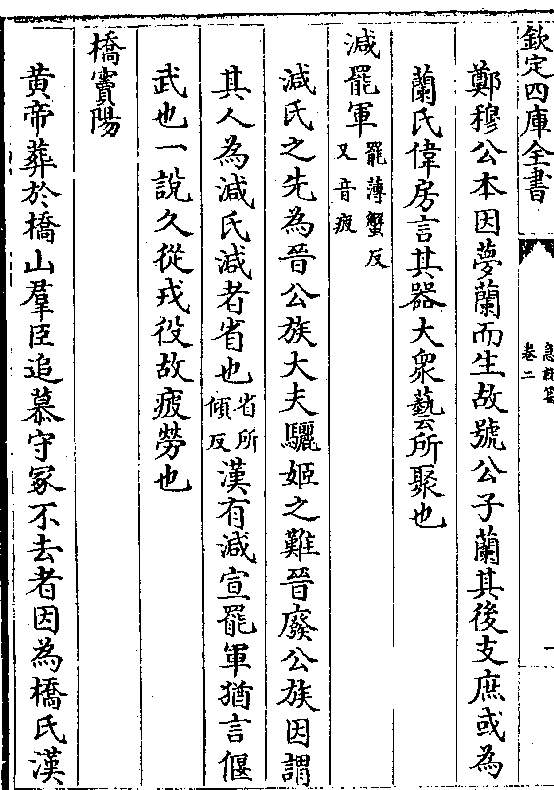 欽定四庫全書
急就篇
卷二
鄭穆公本因夢蘭而生故號公子蘭其後支庶或為
蘭氏偉房言其器大衆藝所聚也
減罷軍罷薄蟹反又音疲
減氏之先為晉公族大夫驪姬之難晉廢公族因謂
其人為減氏減者省也省所傾反漢有減宣罷軍猶言偃
武也一說久從戎役故疲勞也
橋竇陽
黃帝葬於橋山羣臣追慕守冢不去者因為橋氏漢